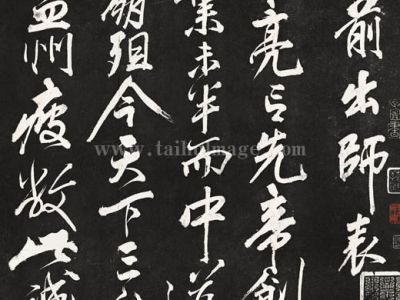 前出師表
亮言先帝創
業未半而中道
崩殂今天下三
益州疲敝此誠